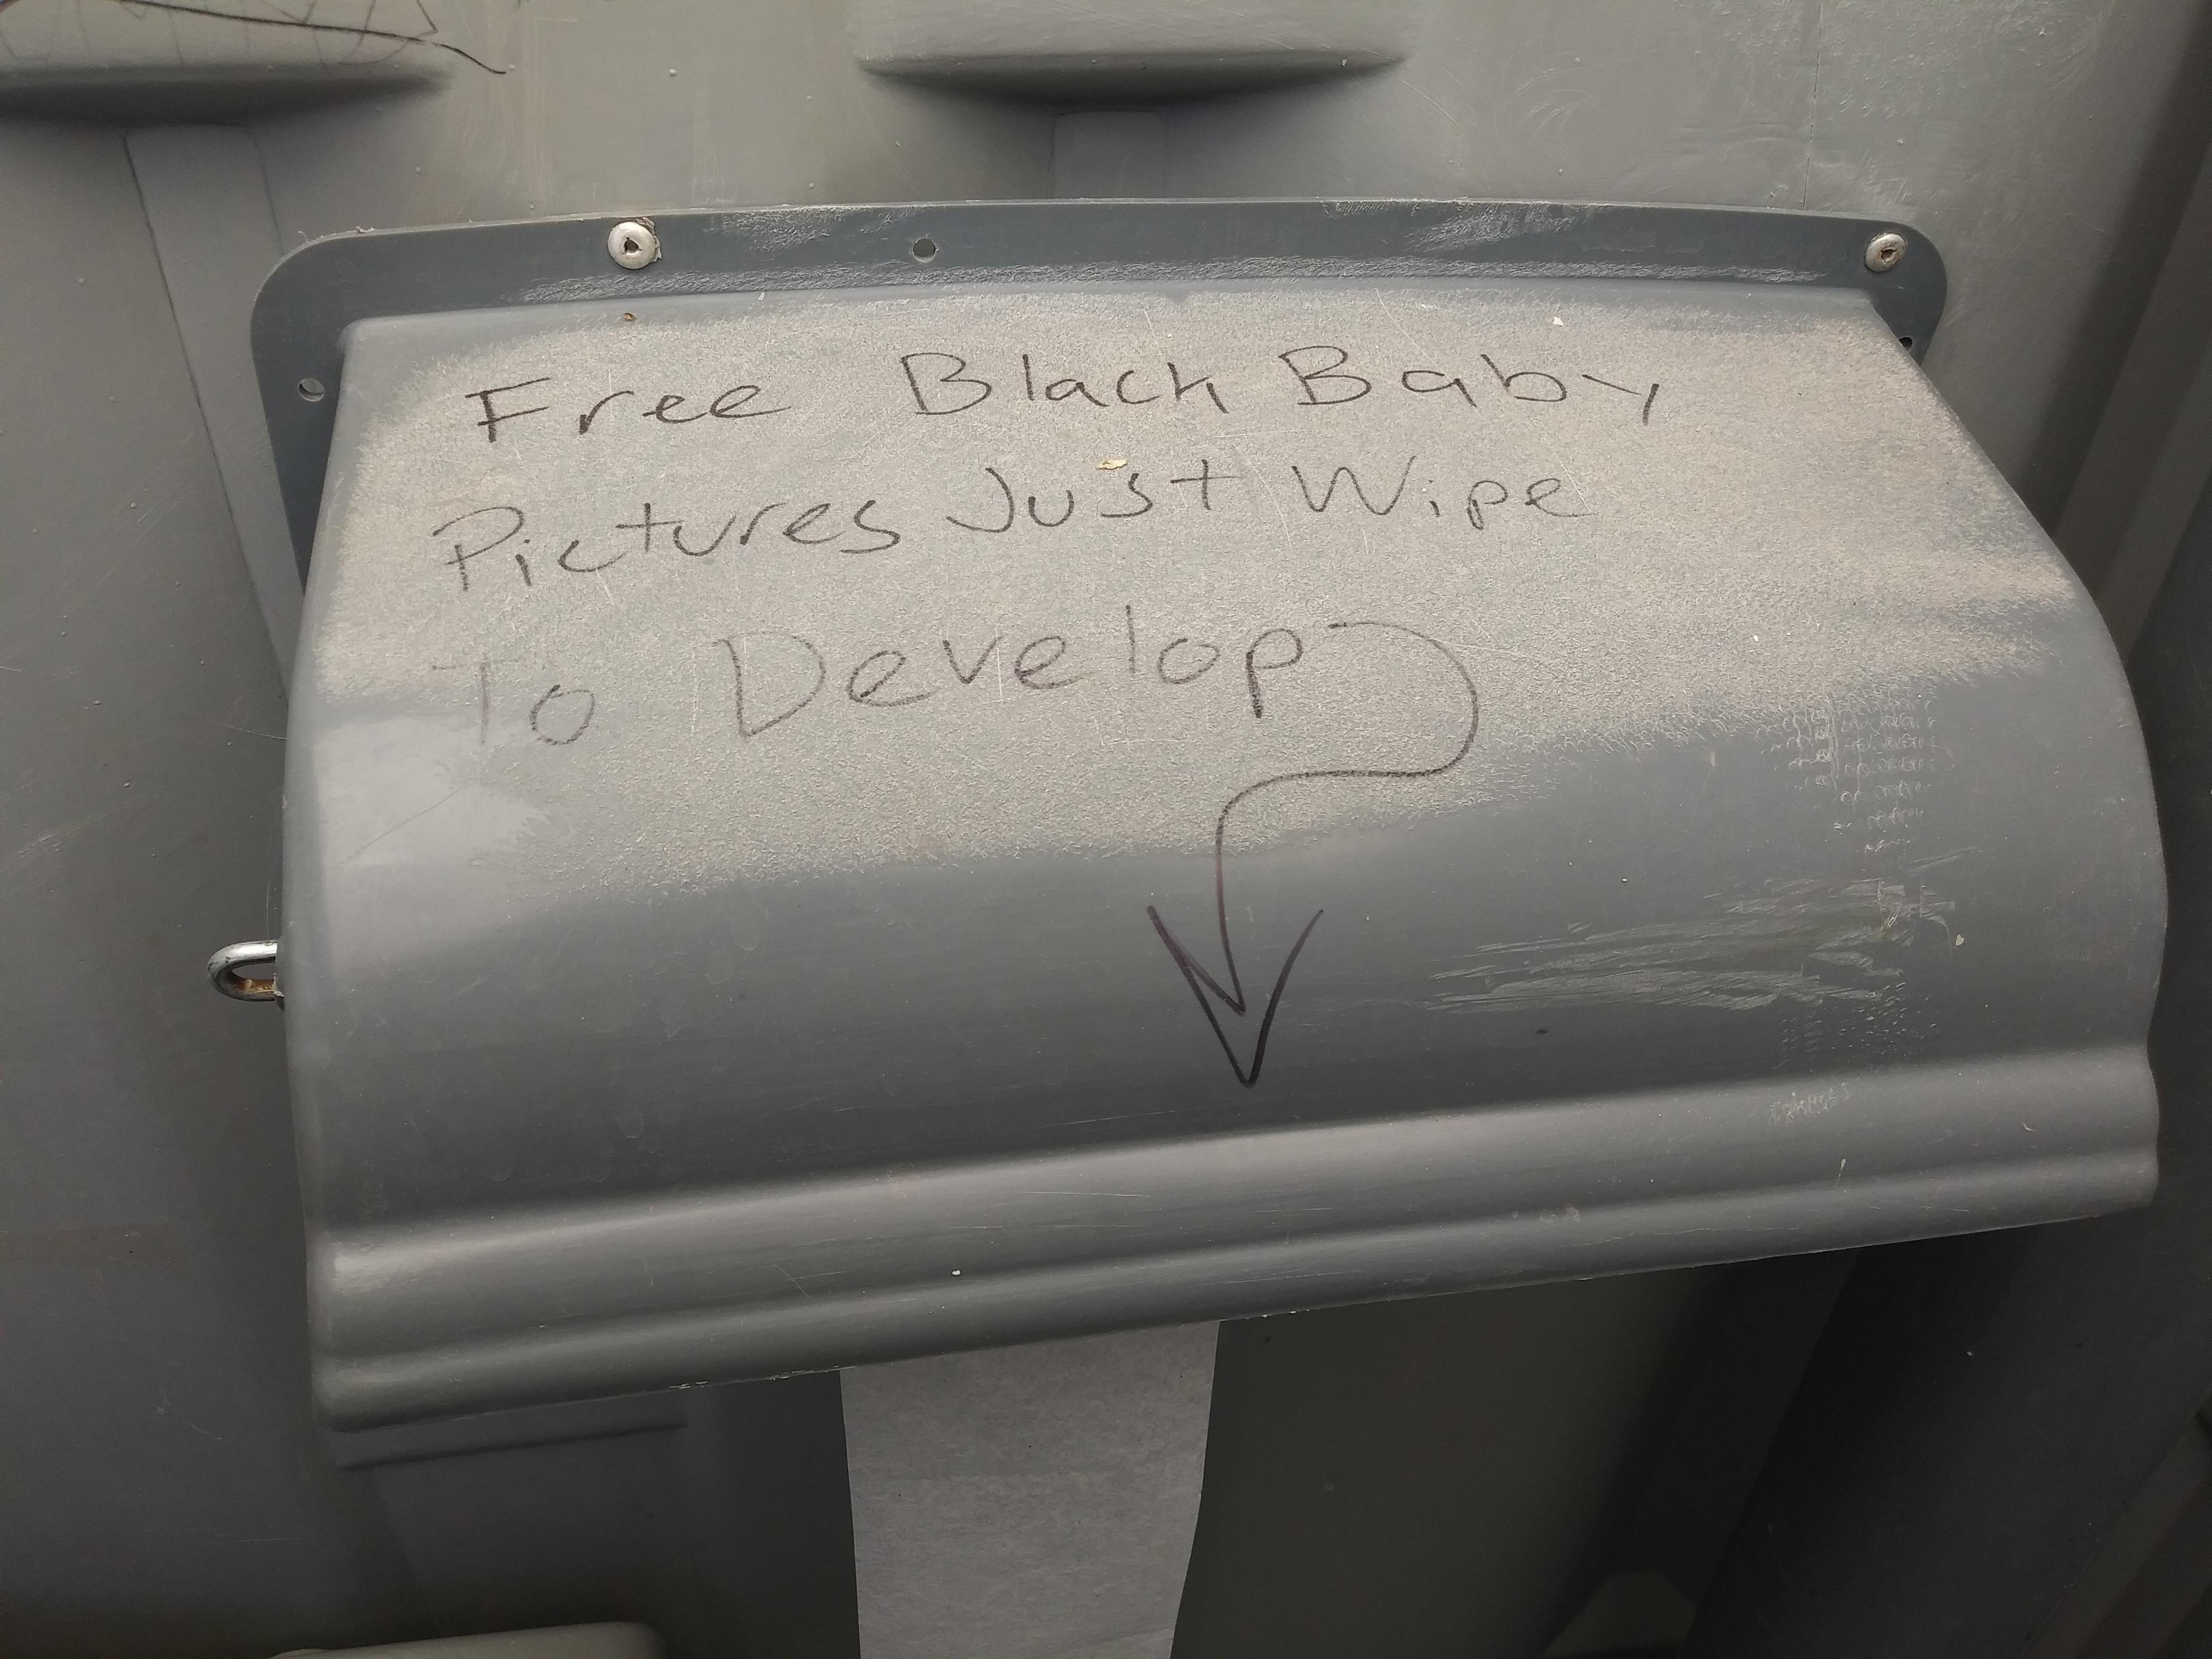 Free Black Baby
Pictures Just Wipe
To Develop